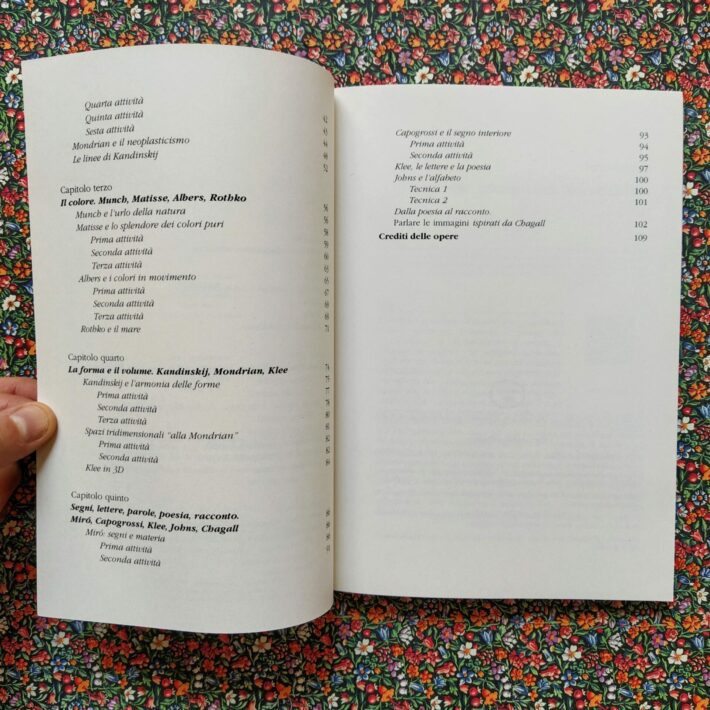 Quarta attività
Quinta attività
Sesta attività 44
Mondrian e il neoplasticismo 48
Le linee di Kandinskij 52
Capitolo terzo
Il colore. Munch, Matisse, Albers, Rothko 56
Munch e l'urlo della natura 56
Matisse e lo splendore dei colori puri 58
Prima attività 59
Seconda attività 60
Terza attività 63
Albers e i colori in movimento 65
Prima attività 67
Seconda attività 68
Terza attività 68
Rothko e il mare 71
Capitolo quarto
La forma e il volume. Kandinskij, Mondrian, Klee 74
Kandinskij e l'armonia delle forme 75
Prima attività 77
Seconda attività 78
Terza attività 80
Spazi tridimensionali "alla Mondrian" 81
Prima attività 82
Seconda attività 82
Klee in 3D
Capitolo quinto
Segni, lettere, parole, poesia, racconto.
Miró, Capogrossi, Klee, Johns, Chagall
Miró: segni e materia
Prima attività
Seconda attività
Capogrossi e il segno interiore 93
Prima attività 94
Seconda attività 95
Klee, le lettere e la poesia 97
Johns e l'alfabeto 100
Tecnica 1 100
Tecnica 2 101
Dalla poesia al racconto.
Parlare le immagini ispirati da Chagall 102
Crediti delle opere 109